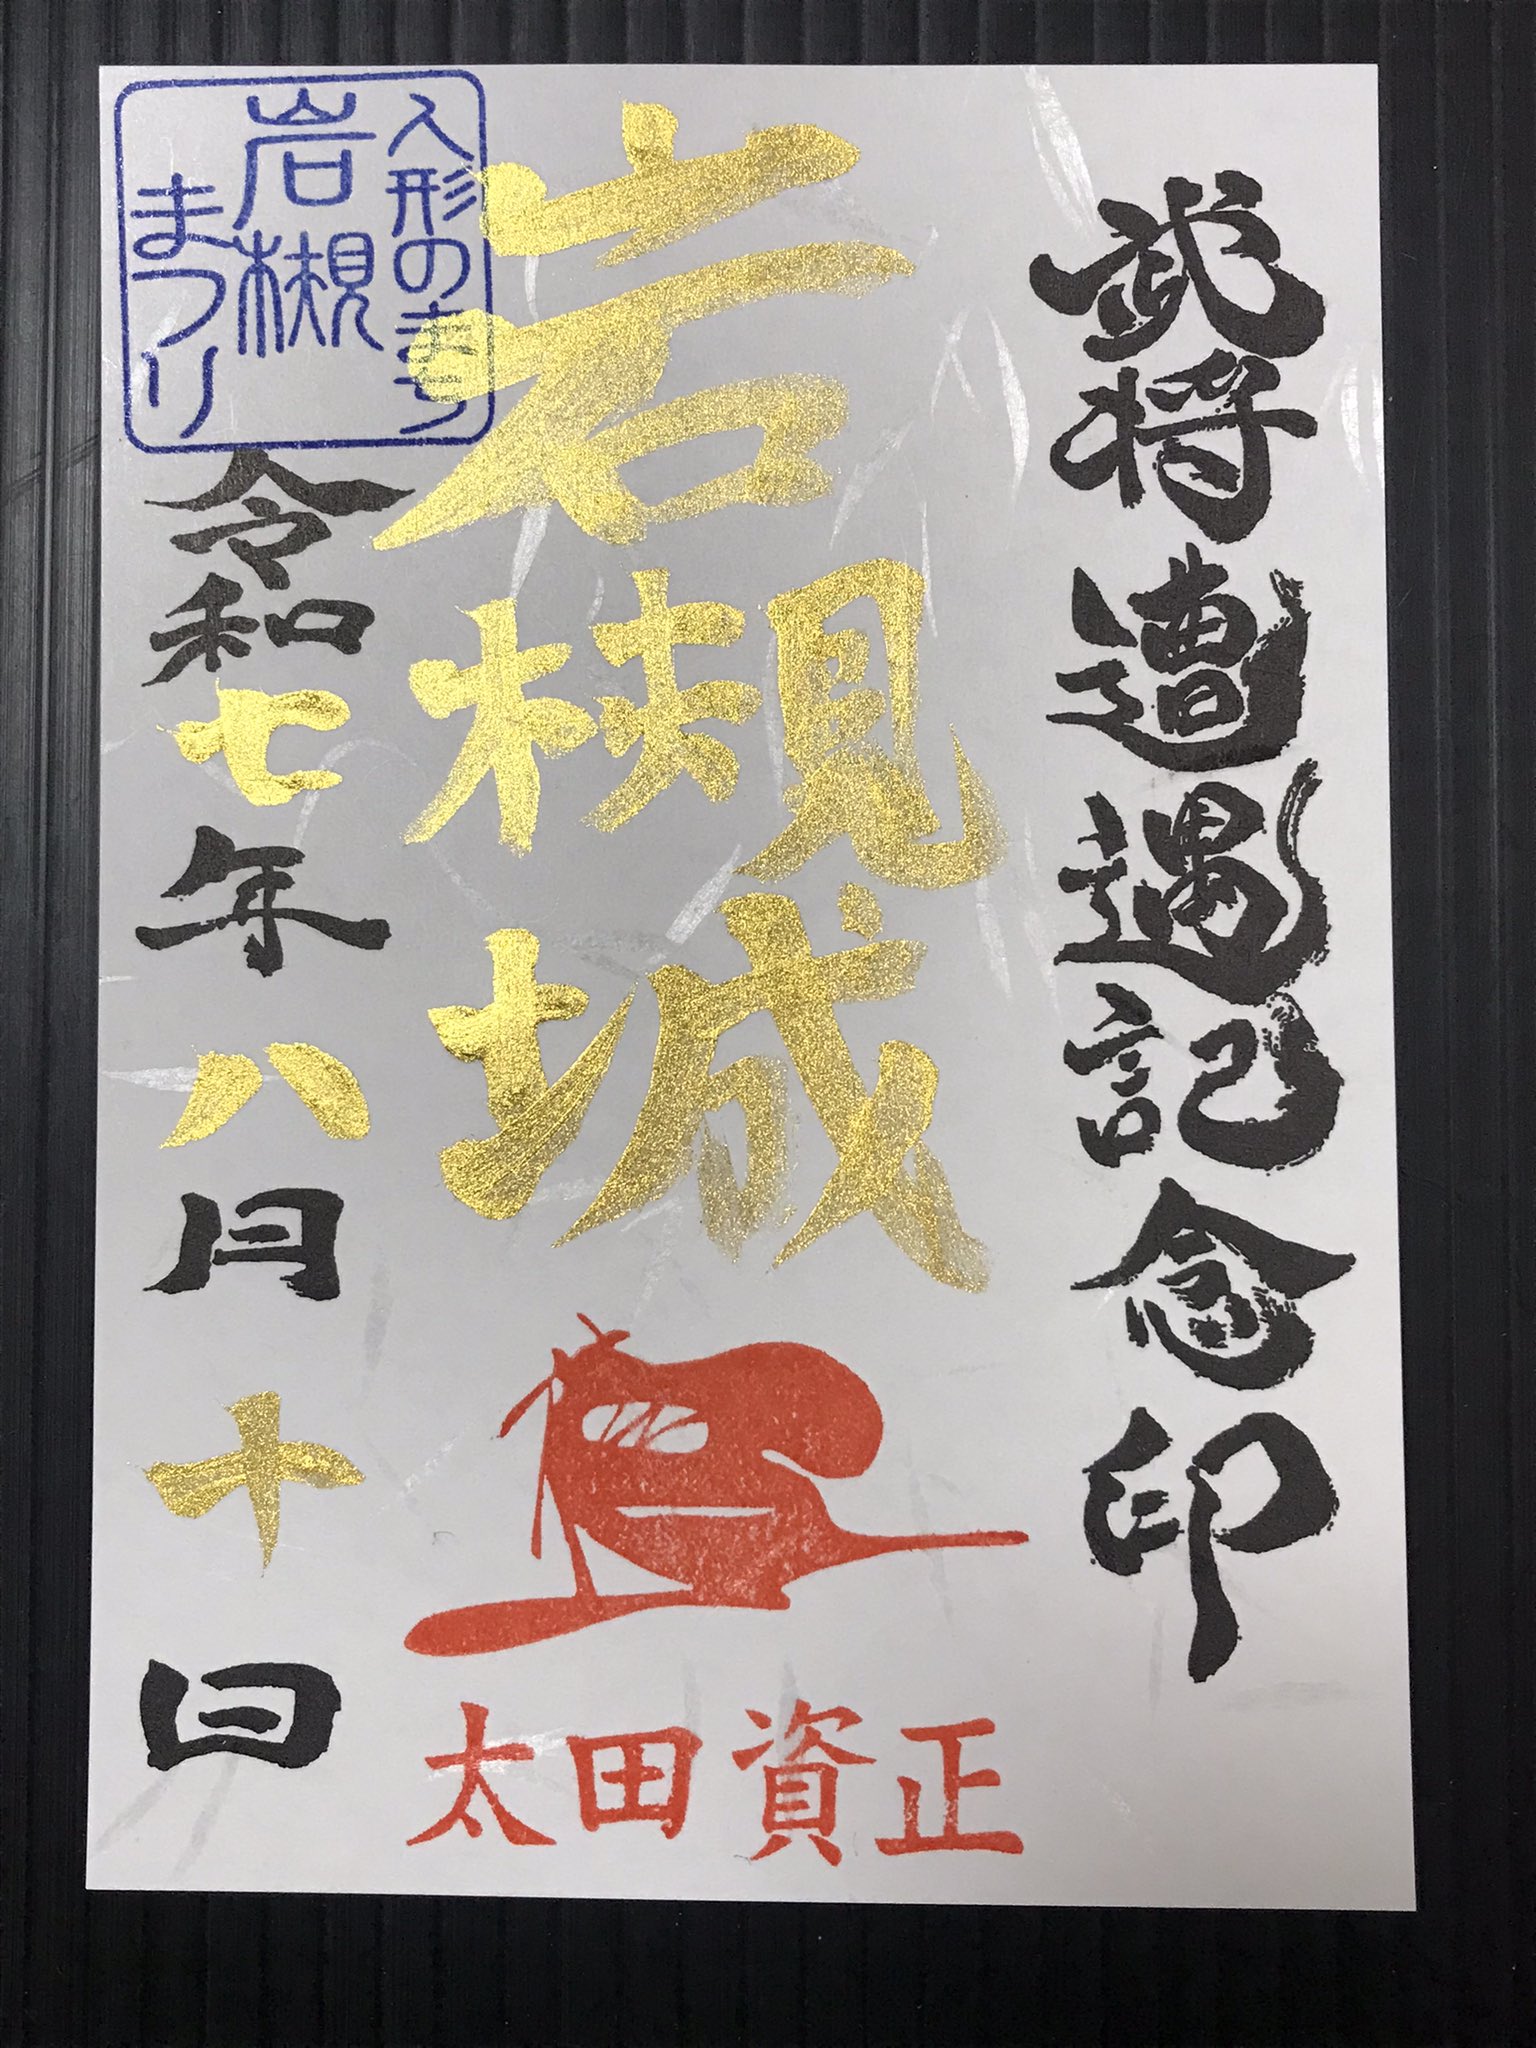 武将遭遇記念印
岩槻城
太田資正
人形のまち
岩槻
まつり
令和七年八月十日